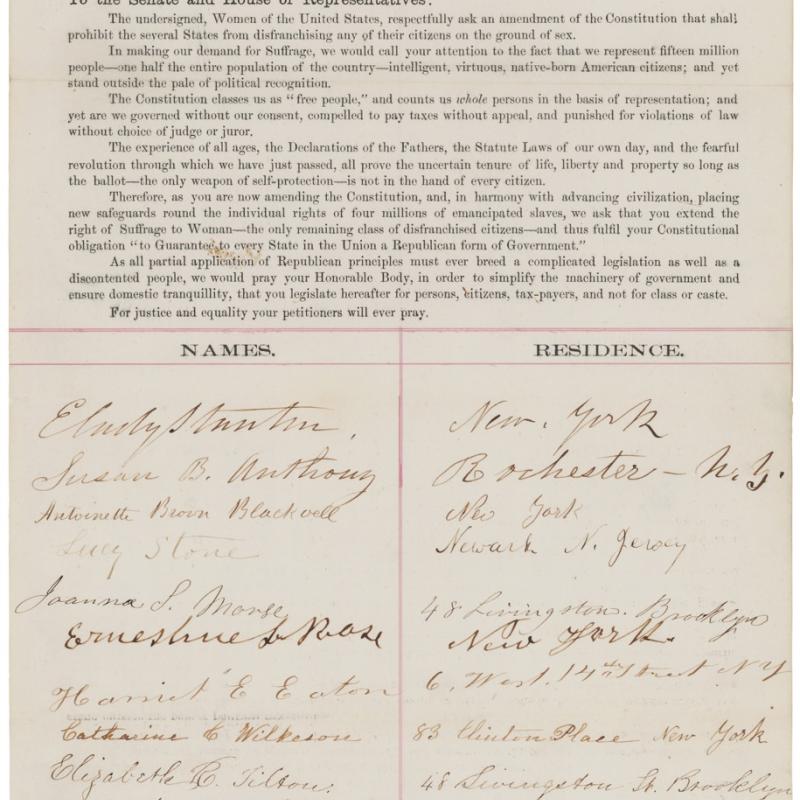 To the Senate and House of Representatives:
The undersigned, Women of the United States, respectfully ask an amendment of the Constitution that shall
prohibit the several States from disfranchising any of their citizens on the ground of sex.
In making our demand for Suffrage, we would call your attention to the fact that we represent fifteen million
people—one half the entire population of the country—intelligent, virtuous, native-born American citizens; and yet
stand outside the pale of political recognition.
The Constitution classes us as "free people," and counts us whole persons in the basis of representation; and
yet are we governed without our consent, compelled to pay taxes without appeal, and punished for violations of law
without choice of judge or juror.
The experience of all ages, the Declarations of the Fathers, the Statute Laws of our own day, and the fearful
revolution through which we have just passed, all prove the uncertain tenure of life, liberty and property so long as
the ballot—the only weapon of self-protection—is not in the hand of every citizen.
Therefore, as you are now amending the Constitution, and, in harmony with advancing civilization, placing
new safeguards round the individual rights of four millions of emancipated slaves, we ask that you extend the
right of Suffrage to Woman—the only remaining class of disfranchised citizens—and thus fulfil your Constitutional
obligation "to Guarantee to every State in the Union a Republican form of Government."
As all partial application of Republican principles must ever breed a complicated legislation as well as a
discontented people, we would pray your Honorable Body, in order to simplify the machinery of government and
ensure domestic tranquillity, that you legislate hereafter for persons, citizens, tax-payers, and not for class or caste.
For justice and equality your petitioners will ever pray.
NAMES. RESIDENCE.
E Cady Stanton, New. York
Susan B. Anthony Rochester - N. Y.
Antoinette Brown Blackwell New York
Lucy Stone Newark N. Jersey
Joanna S. Morse 48 Livingston. Brooklyn
Ernestine L Rose New York.
Harriet E Eaton 6. West. 14th Street N Y
Catharine C Wilkeson 83 Clinton Place New York
Elizabeth R. Tilton. 48 Livingston St. Brooklyn